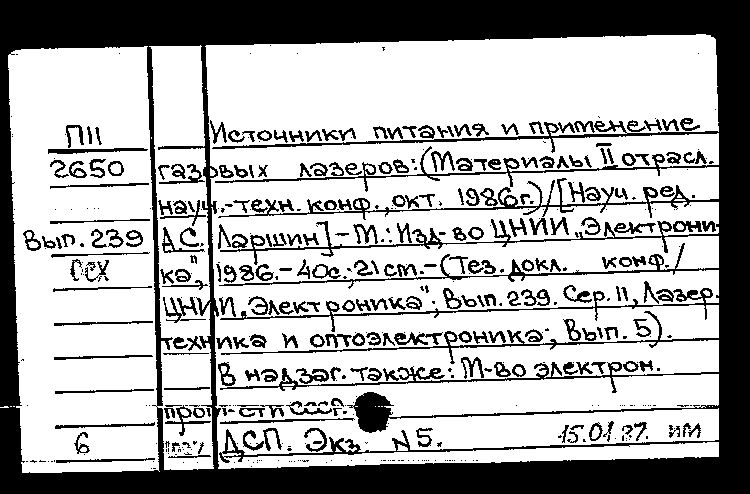 П11 Источники питания и применение
2650 газовых лазеров:(Материалы II отрасл.
науч.-техн. конф., окт. 1986г.)/[Науч. ред.
Вып. 239 А.С. Ларшин]-М.: Изд-во ЦНИИ „Электрони-
ОСХ ка", 1986.-40с.; 21 cm.-(Тез. докл. конф./
ЦНИИ „Электроника"; Вып. 239. Сер. 11, Лазер.
техника и оптоэлектроника; Вып. 5).
В надзаг. также: М-во электрон.
пром-сти СССР.
6 ДСП. Экз. N5. 15.01.87. ИМ